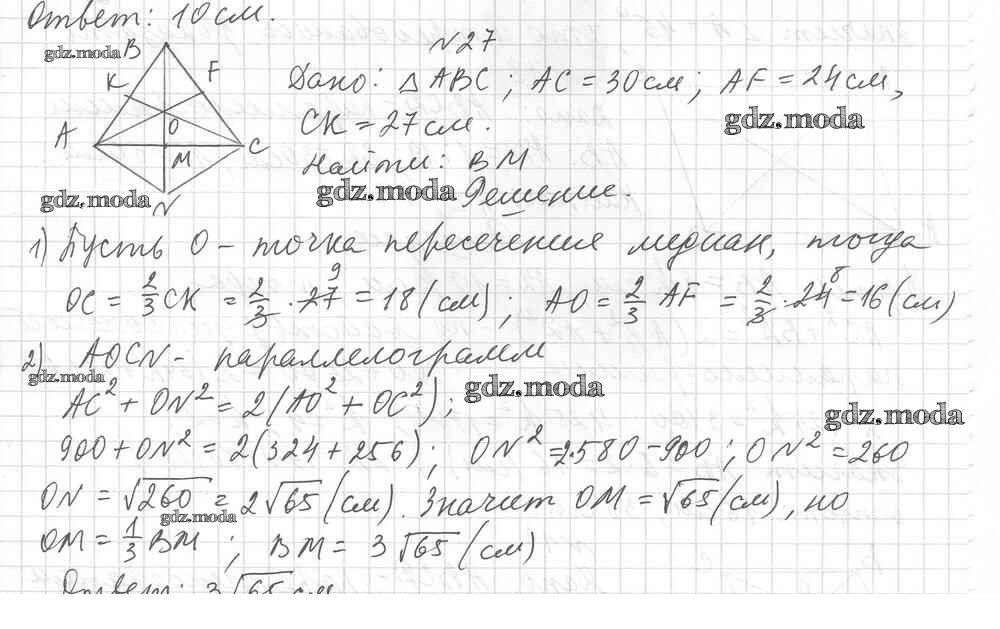 Ответ: 10 см.
gdz.moda B
№27
K F
Дано: △ABC; AC = 30 см; AF = 24 см,
CK = 27 см.
gdz.moda
A O C
M
Найти: BM
gdz.moda N gdz.moda Решение.
1) Пусть O – точка пересечения медиан, тогда
OC = 2/3 CK = 2/3 · 27 9 = 18 (см); AO = 2/3 AF = 2/3 · 24 8 = 16 (см)
2) AOCN – параллелограмм
gdz.moda
AC² + ON² = 2(AO² + OC²); gdz.moda
gdz.moda
900 + ON² = 2(324 + 256); ON² = 2·580 – 900; ON² = 260
ON = √260 = 2√65 (см). Значит OM = √65 (см), но
gdz.moda
OM = 1/3 BM; BM = 3√65 (см)
Ответ: 3√65 см